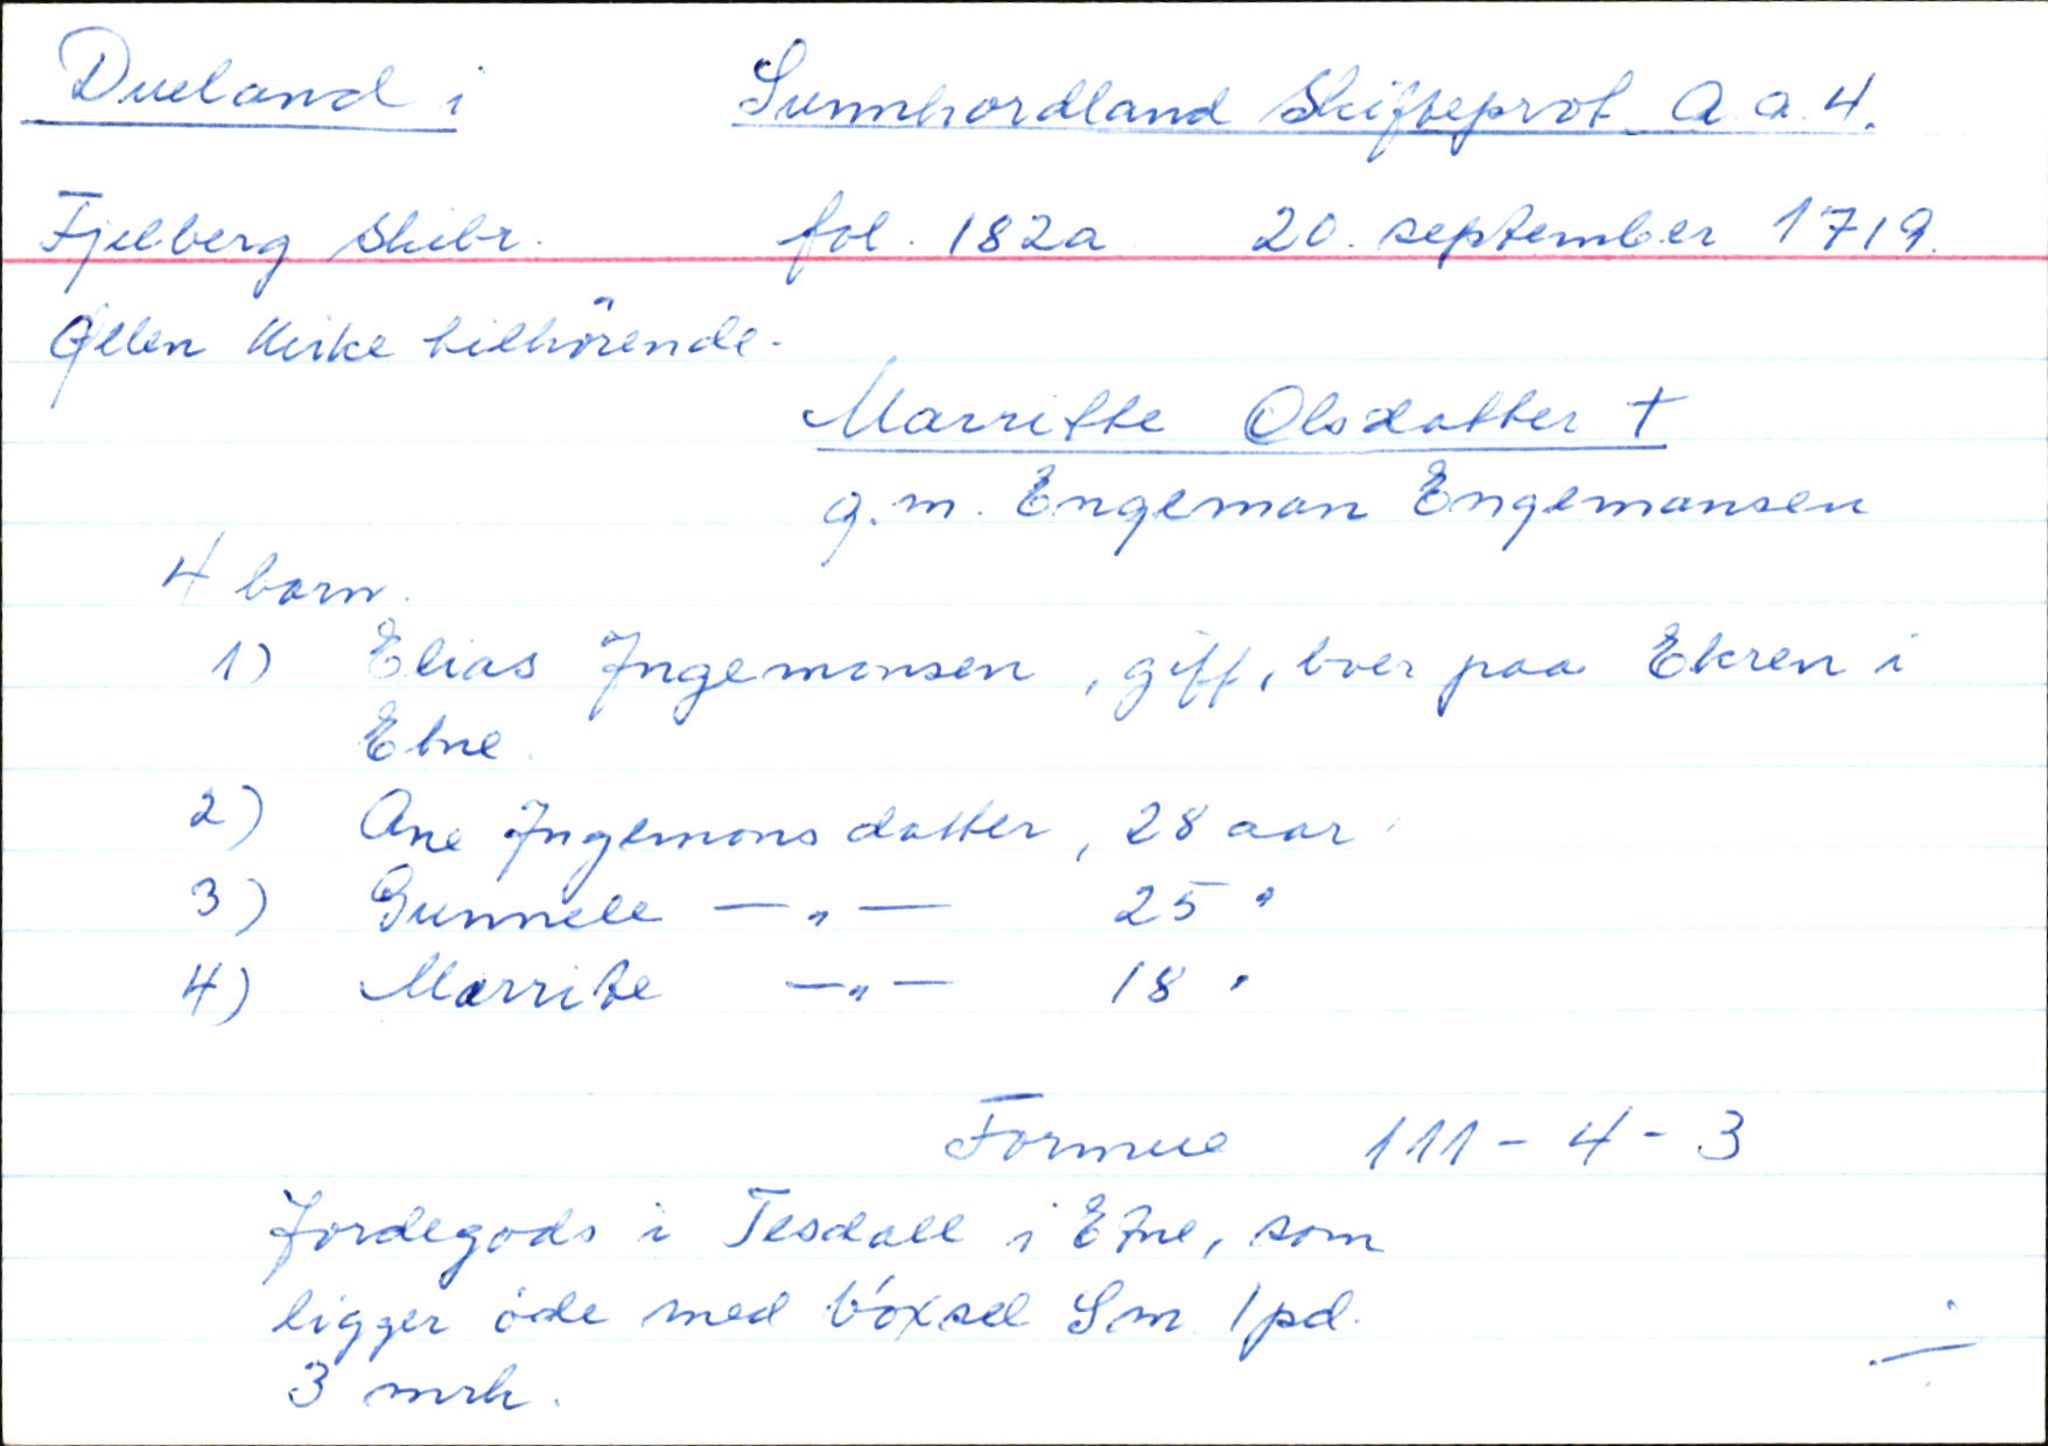 Dueland i Sunnhordland Skifteprot. A.a.4.
Fjelberg Skibr. fol. 182a 20. september 1719.
Ølen Kirke tilhörende.
Marritte Olsdatter †
g.m. Engeman Engemansen
4 barn.
1) Elias Ingemansen, gift, boer paa Ekren i
Etne.
2) Ane Ingemansdatter, 28 aar
3) Gunnele —„— 25 "
4) Marrite —„— 18 "
Formue 111 - 4 - 3
Jordegods i Tesdall i Etne, som
ligger öde med böxsel Sm 1 pd.
3 mrk.